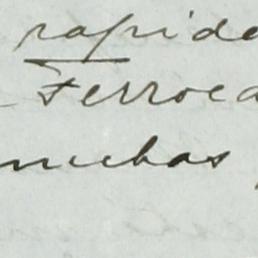 rapide
Ferroca
muchas